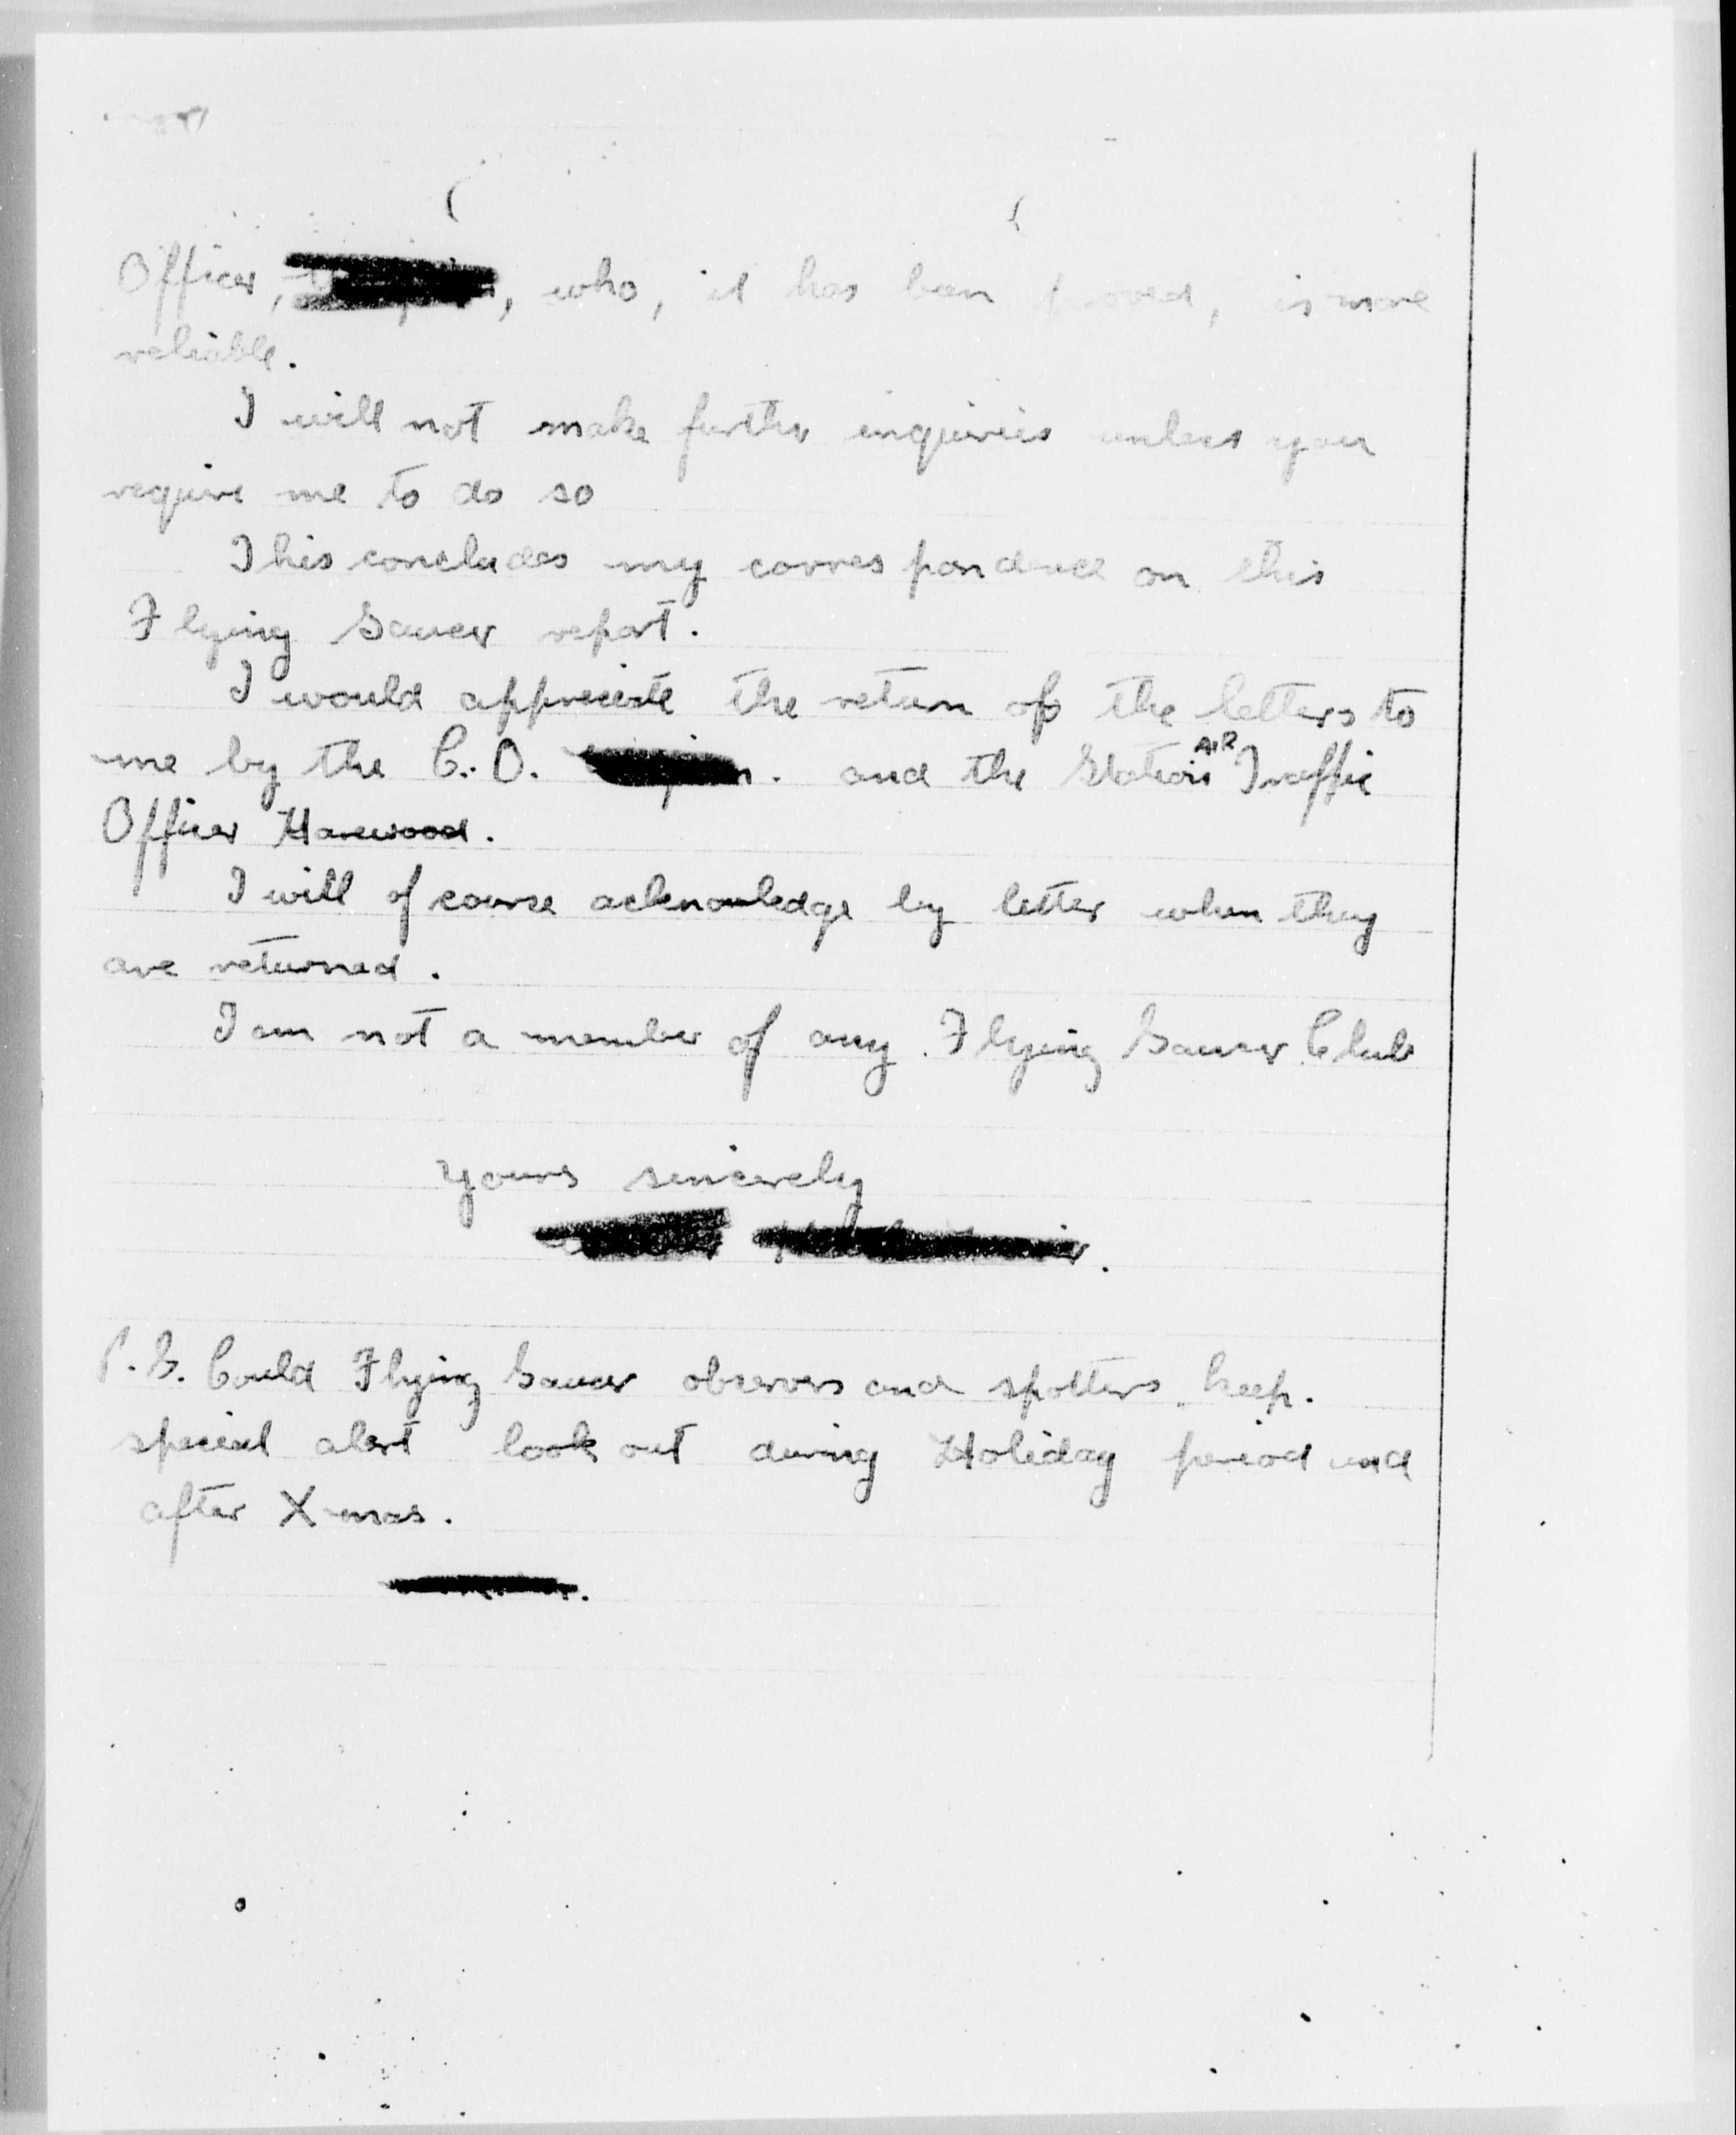 Officer, , who, it has been proved, is more
reliable.
I will not make further inquiries unless you
require me to do so
This concludes my correspondence on this
Flying Saucer report.
I would appreciate the return of the letters to
me by the C.O. . and the Station AIR Traffic
Officer Harewood.
I will of course acknowledge by letter when they
are returned.
I am not a member of any Flying Saucer Club
Yours sincerely
P.S. Could Flying Saucer observers and spotters keep.
special alert look out during Holiday period and
after X-mas.